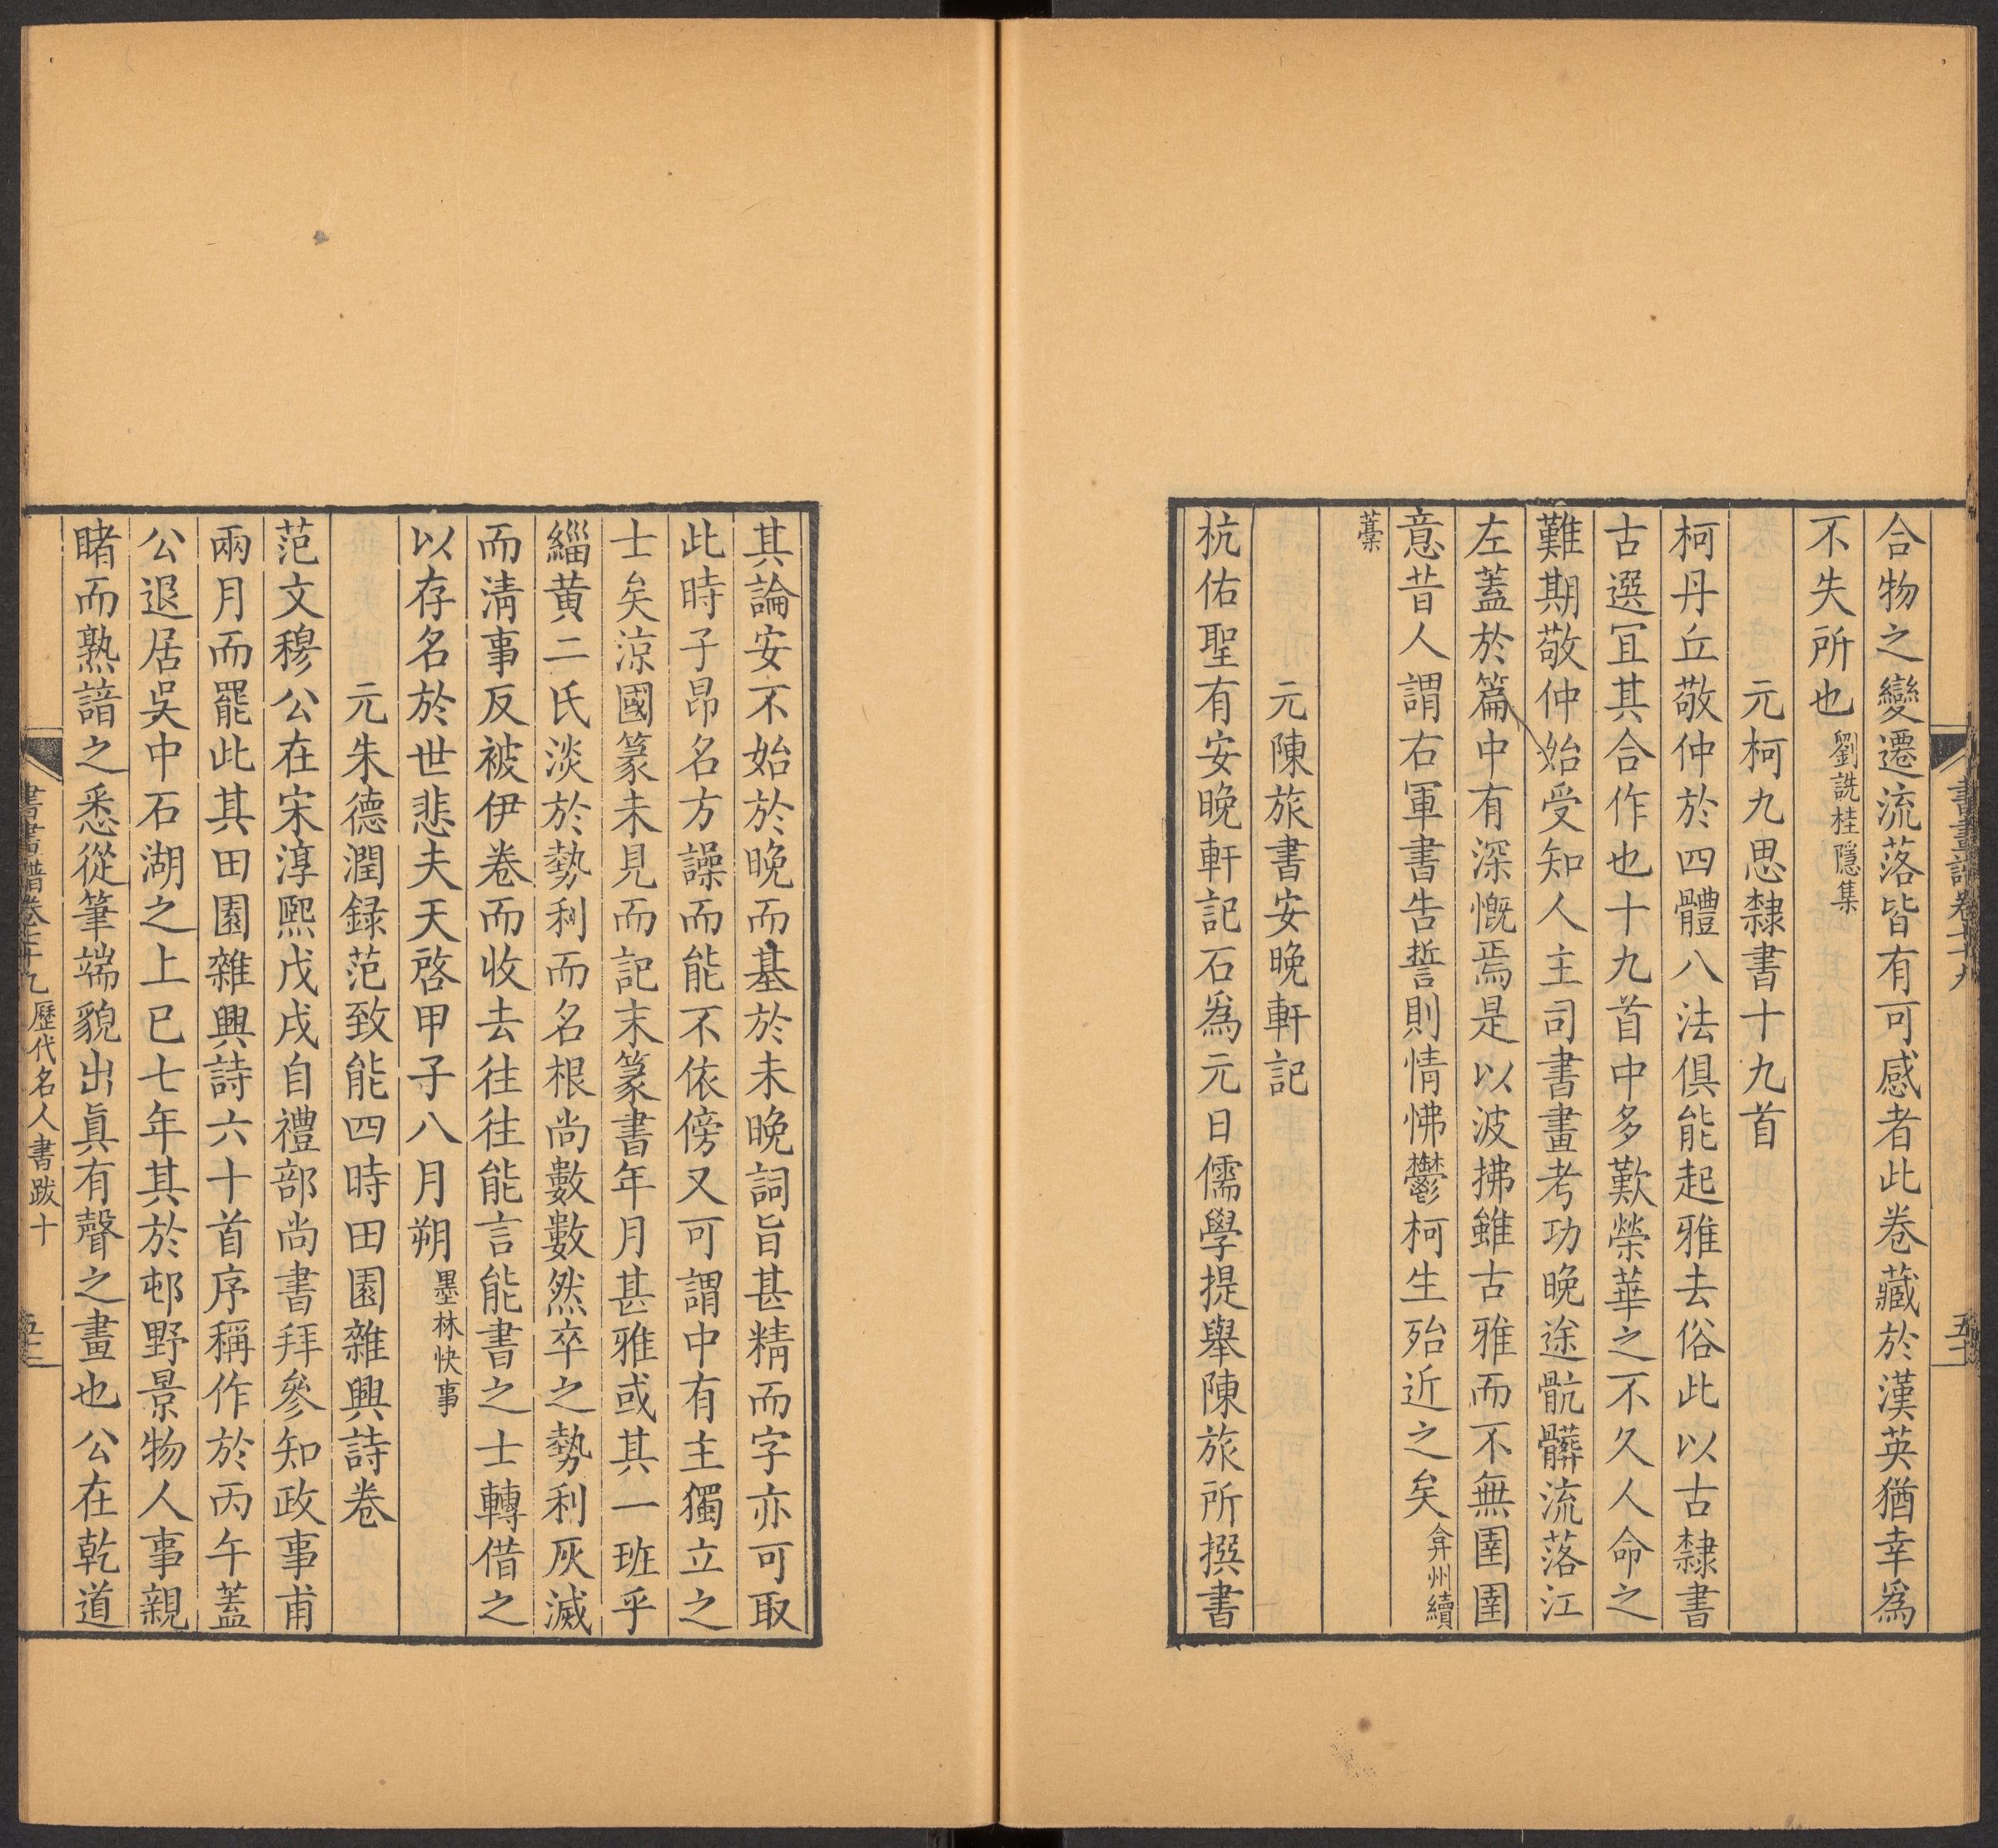 合物之變遷流落皆有可感者此卷藏於漢英猶幸爲
不失所也劉詵桂隱集
元柯九思隸書十九首
柯丹丘敬仲於四體八法俱能起雅去俗此以古隸書
古選冝其合作也十九首中多歎榮華之不久人命之
難期敬仲始受知人主司書畫考功晚途骯髒流落江
左蓋於篇中有深慨焉是以波拂雖古雅而不無圉圉
意昔人謂右軍書告誓則情怫鬱柯生殆近之矣弇州續
藁
元陳旅書安晚軒記
杭佑聖有安晚軒記石爲元日儒學提舉陳旅所撰書
其論安不始於晚而基於未晚詞旨甚精而字亦可取
此時子昂名方譟而能不依傍又可謂中有主獨立之
士矣涼國篆未見而記末篆書年月甚雅或其一班乎
緇黄二氏淡於勢利而名根尚數數然卒之勢利灰滅
而淸事反被伊卷而收去往往能言能書之士轉借之
以存名於世悲夫天啓甲子八月朔墨林快事
元朱德潤録范致能四時田園雜興詩卷
范文穆公在宋淳熙戊戌自禮部尚書拜參知政事甫
兩月而罷此其田園雜興詩六十首序稱作於丙午蓋
公退居吳中石湖之上已七年其於邨野景物人事親
睹而熟諳之悉從筆端貌出眞有聲之畫也公在乾道
書畫譜卷七十九 歷代名人書跋十